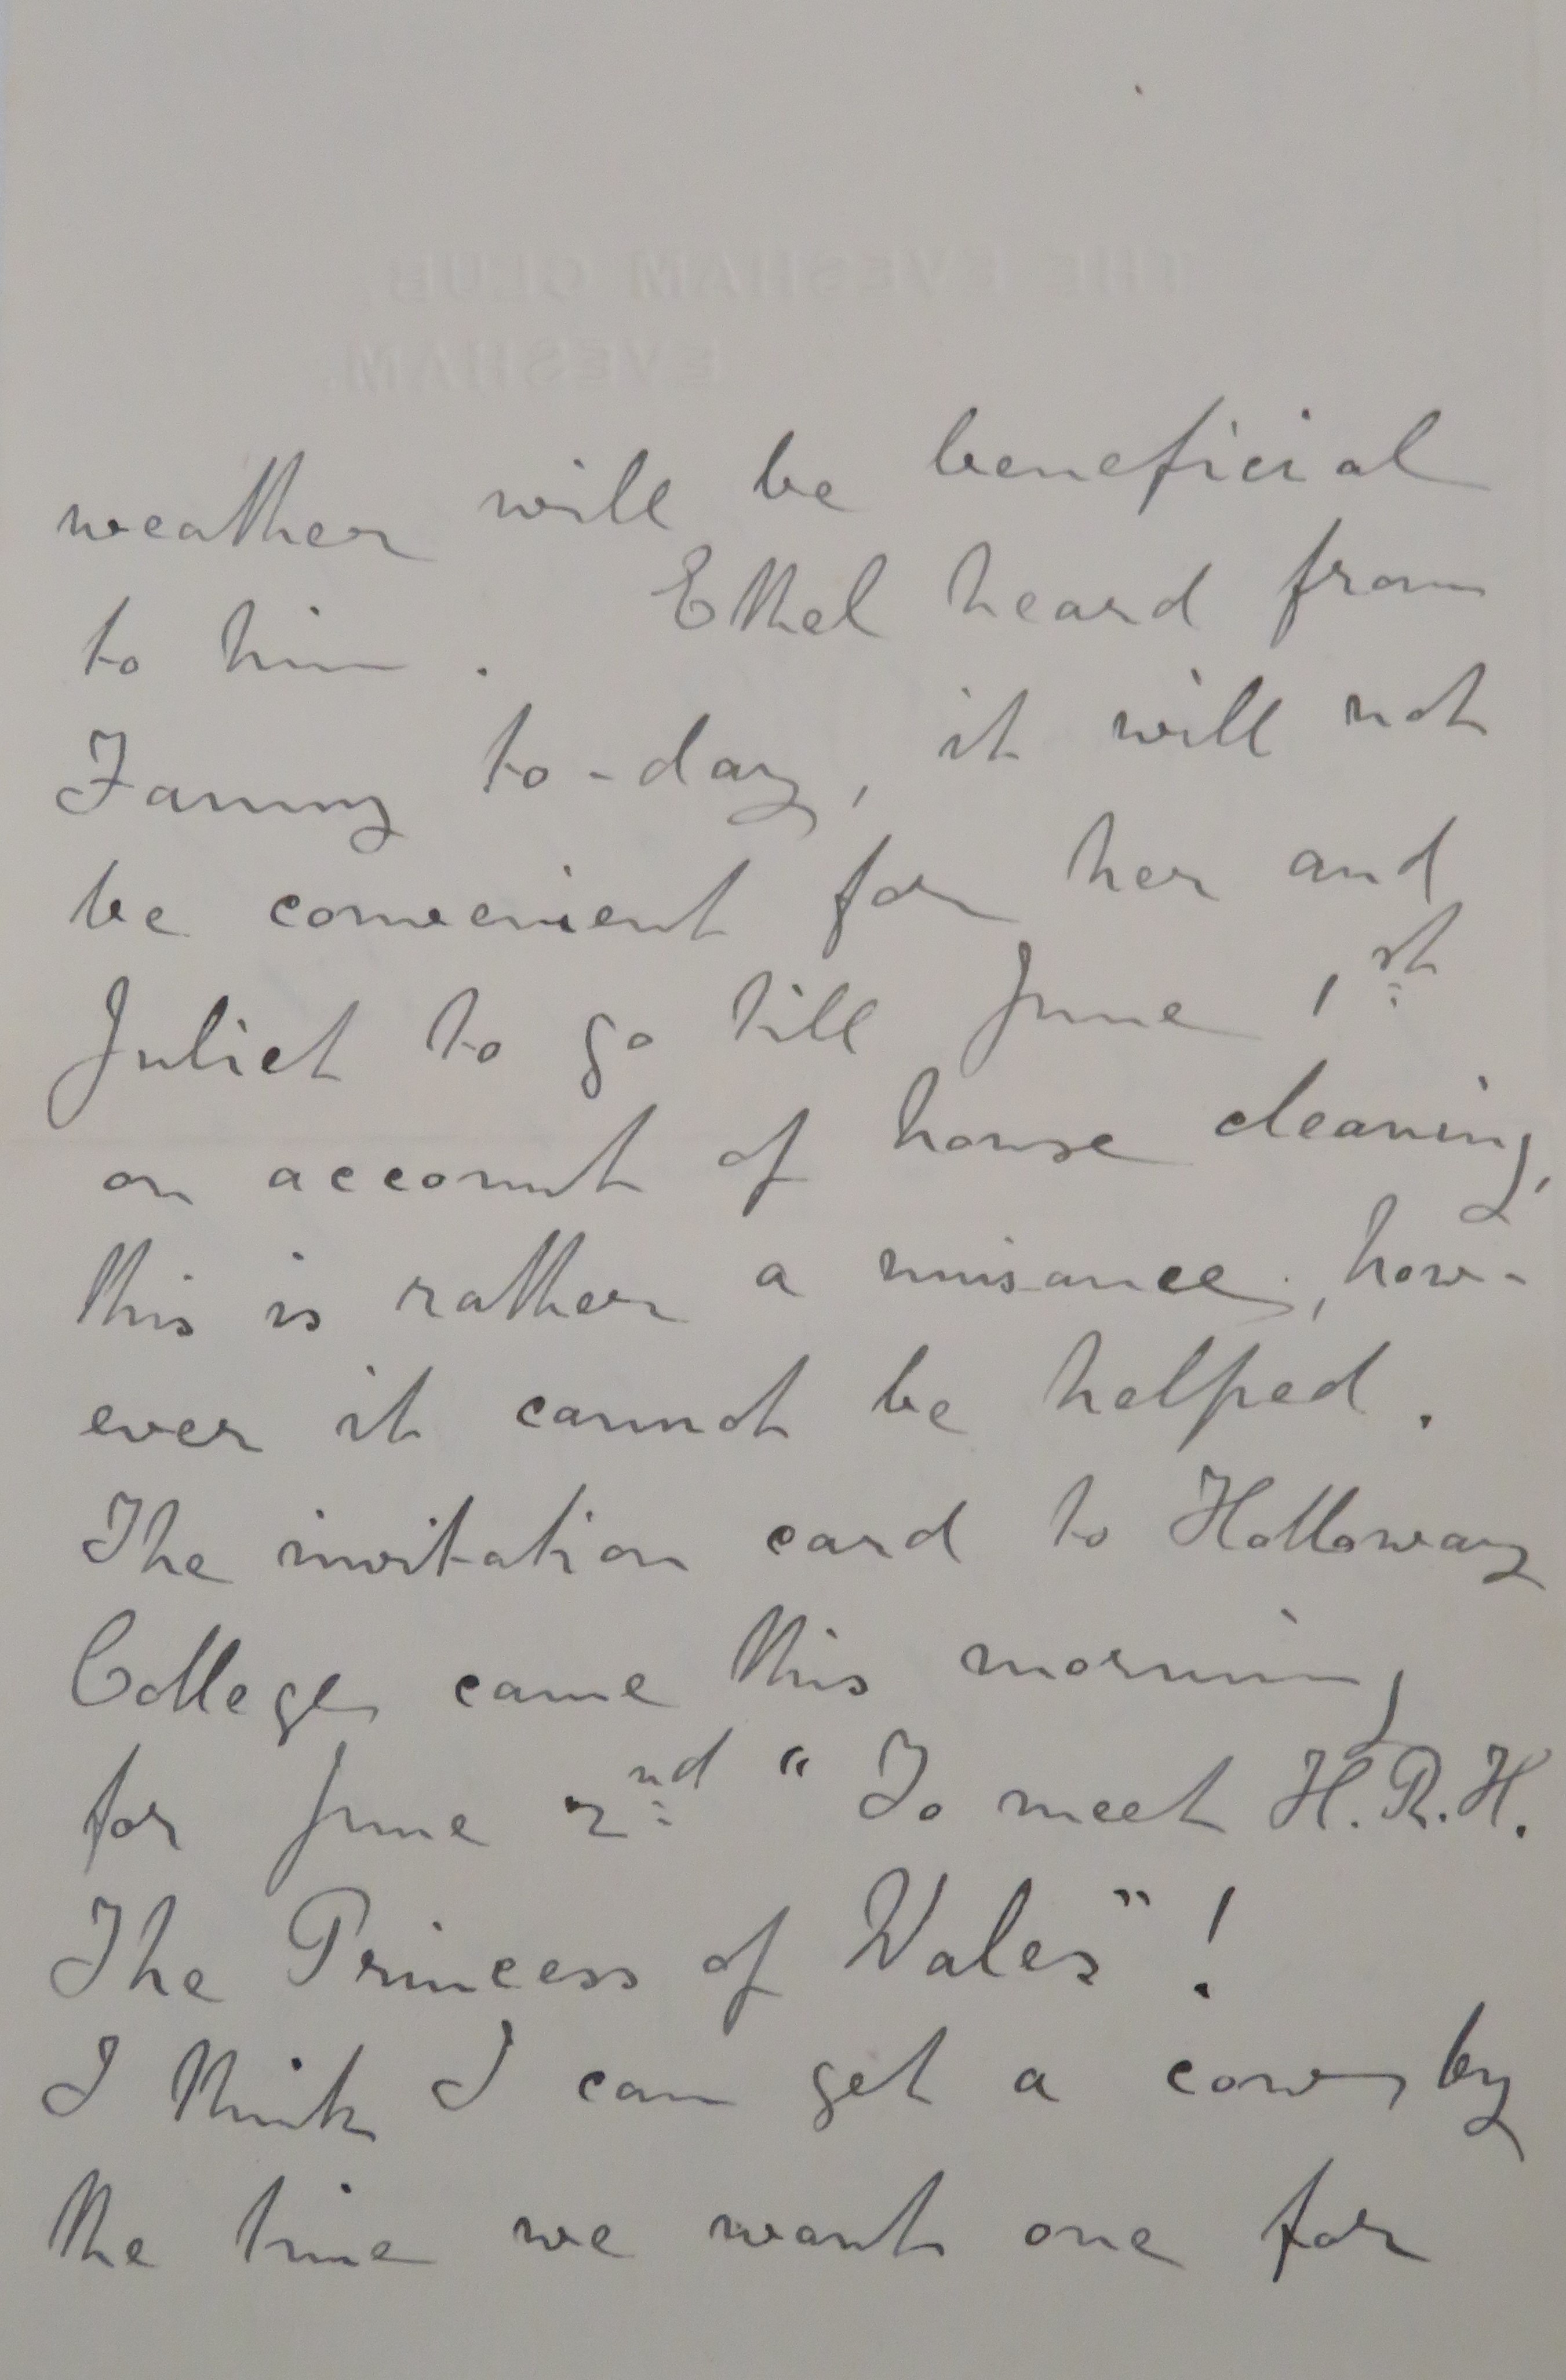 THE EVESHAM CLUB,
EVESHAM.
weather will be beneficial
to him. Ethel heard from
Fanny to-day, it will not
be convenient for her and
Juliet to go till June 1st
on account of house cleaning,
this is rather a nuisance, how-
ever it cannot be helped.
The invitation card to Holloway
College came this morning
for June 2nd "To meet H.R.H.
The Princess of Wales"!
I think I can get a cow by
the time we want one for